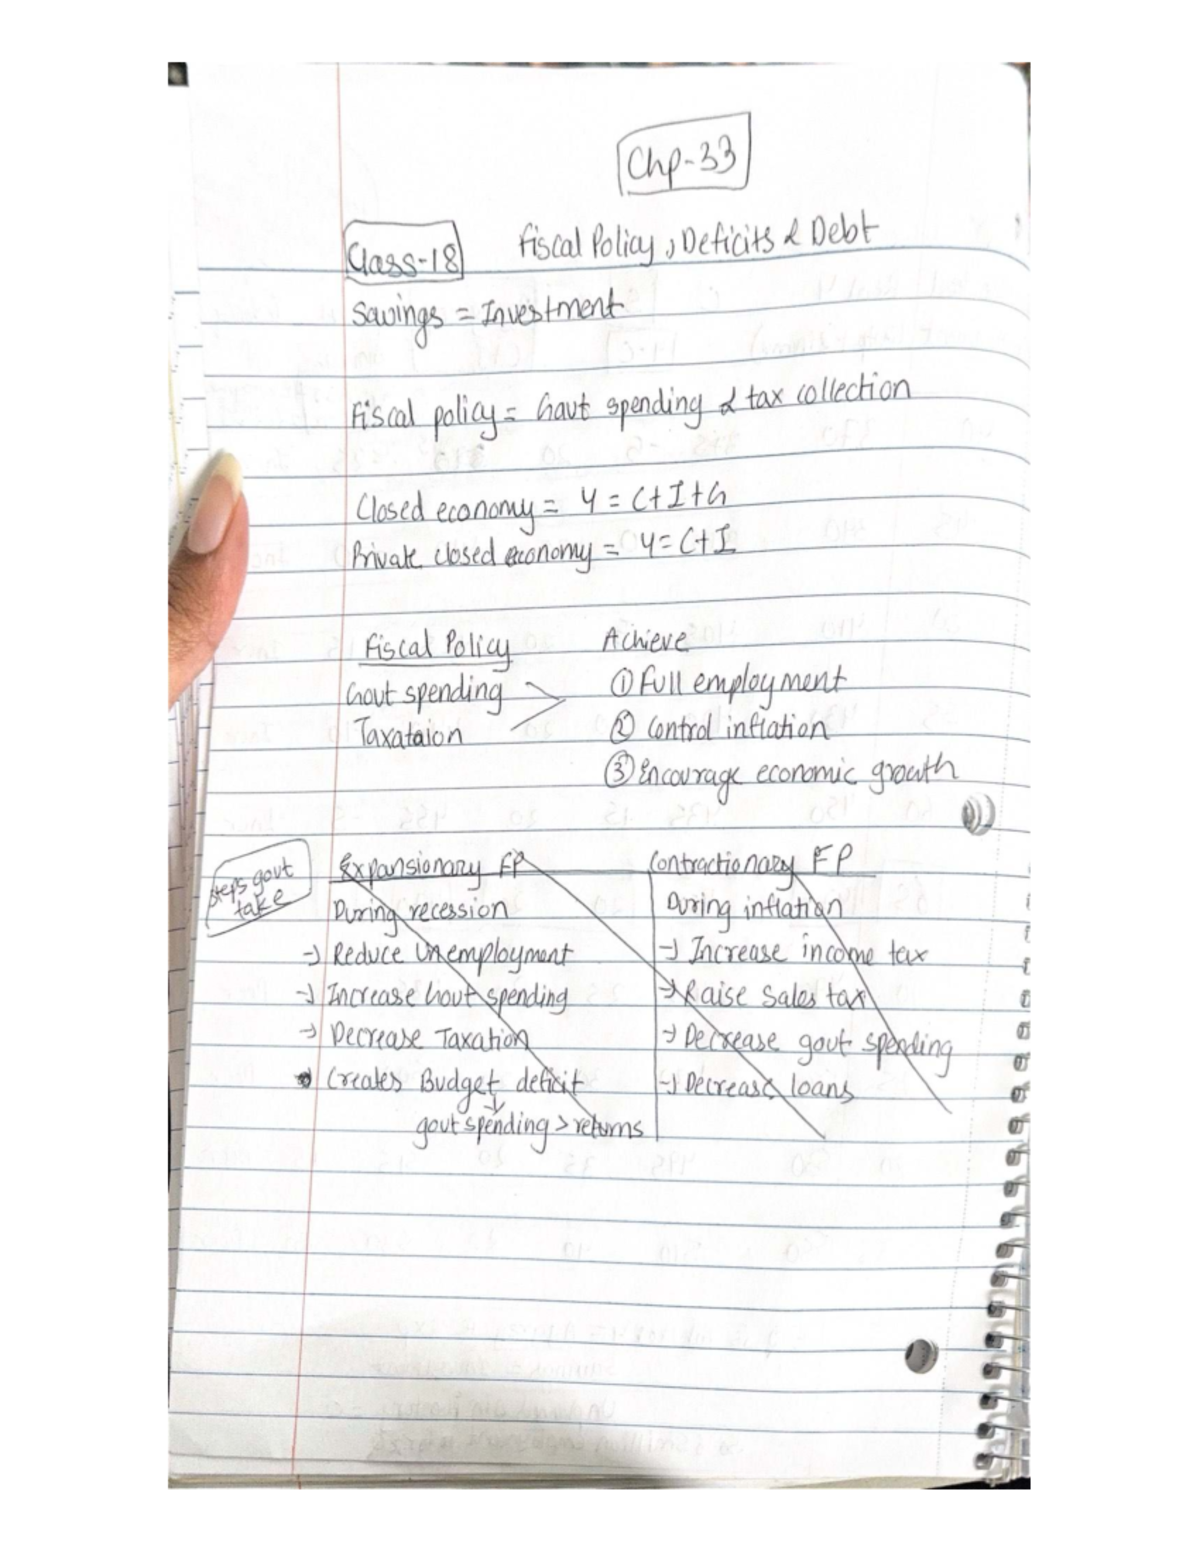 Chp-33
Class-18 Fiscal Policy, Deficits & Debt
Savings = Investment
Fiscal policy = Govt spending & tax collection
Closed economy = Y = C+I+G
Private closed economy = Y = C+I
Fiscal Policy Achieve
Govt spending ① Full employment
Taxataion ② Control inflation
③ Encourage economic growth
Steps govt take
Expansionary FP Contractionary FP
During recession During inflation
→ Reduce Unemployment → Increase income tax
→ Increase Govt spending → Raise Sales tax
→ Decrease Taxation → Decrease govt spending
→ Creates Budget deficit → Decrease loans
↓
govt spending > returns